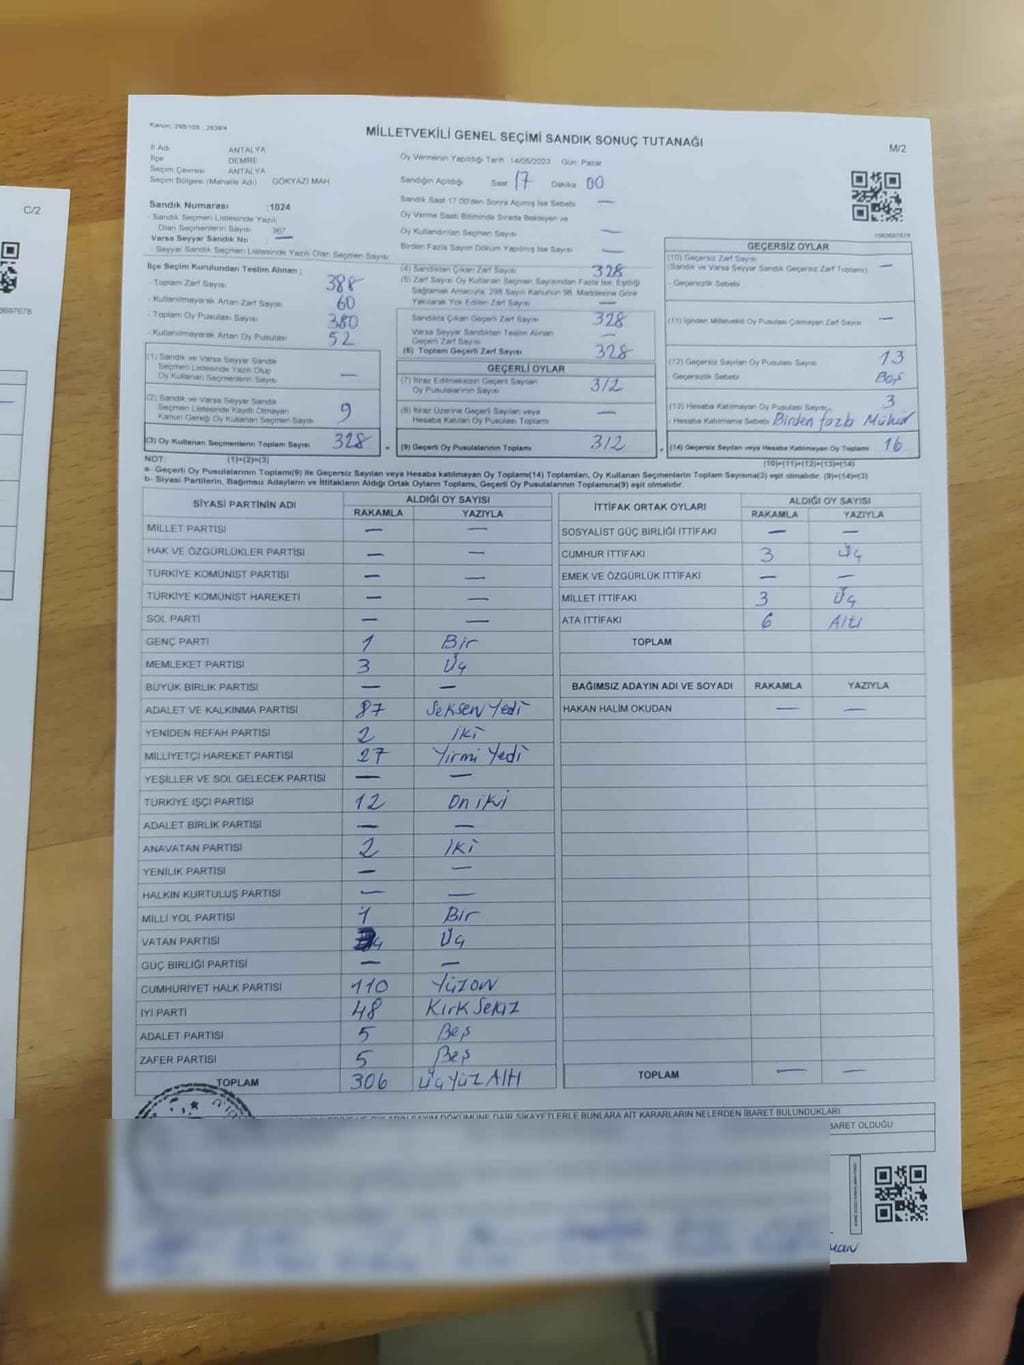 C/2
Kanun: 298/105 : 2839/4
MİLLETVEKİLİ GENEL SEÇİMİ SANDIK SONUÇ TUTANAĞI
M/2
İl Adı ANTALYA
İlçe DEMRE
Seçim Çevresi ANTALYA
Seçim Bölgesi (Mahalle Adı) GÖKYAZI MAH
Oy Vermenin Yapıldığı Tarih 14/05/2023 Gün: Pazar
Sandığın Açıldığı Saat 17 Dakika 00
Sandık Saat 17:00'den Sonra Açılmış İse Sebebi —
Oy Verme Saati Bitiminde Sırada Bekleyen ve
Oy Kullandırılan Seçmen Sayısı —
Birden Fazla Sayım Döküm Yapılmış İse Sayısı —
Sandık Numarası :1024
- Sandık Seçmen Listesinde Yazılı
Olan Seçmenlerin Sayısı 367
Varsa Seyyar Sandık No —
- Seyyar Sandık Seçmen Listesinde Yazılı Olan Seçmen Sayısı
İlçe Seçim Kurulundan Teslim Alınan ;
- Toplam Zarf Sayısı 388
- Kullanılmayarak Artan Zarf Sayısı 60
- Toplam Oy Pusulası Sayısı 380
- Kullanılmayarak Artan Oy Pusulası 52
(1) Sandık ve Varsa Seyyar Sandık
Seçmen Listesinde Yazılı Olup
Oy Kullanan Seçmenlerin Sayısı —
(2) Sandık ve Varsa Seyyar Sandık
Seçmen Listesinde Kayıtlı Olmayan
Kanun Gereği Oy Kullanan Seçmenlerin Sayısı 9
(3) Oy Kullanan Seçmenlerin Toplam Sayısı 328
(1)+(2)=(3)
(4) Sandıktan Çıkan Zarf Sayısı 328
(5) Zarf Sayısı Oy Kullanan Seçmen Sayısından Fazla İse; Eşitliği
Sağlamak Amacıyla, 298 Sayılı Kanunun 98. Maddesine Göre
Yakılarak Yok Edilen Zarf Sayısı —
Sandıkta Çıkan Geçerli Zarf Sayısı 328
Varsa Seyyar Sandıktan Teslim Alınan
Geçerli Zarf Sayısı —
(6) Toplam Geçerli Zarf Sayısı 328
GEÇERLİ OYLAR
(7) İtiraz Edilmeksizin Geçerli Sayılan
Oy Pusulalarının Sayısı 312
(8) İtiraz Üzerine Geçerli Sayılan veya
Hesaba Katılan Oy Pusulaları Toplamı —
= (9) Geçerli Oy Pusulalarının Toplamı 312
1083697678
GEÇERSİZ OYLAR
(10) Geçersiz Zarf Sayısı
(Sandık ve Varsa Seyyar Sandık Geçersiz Zarf Toplamı) —
- Geçersizlik Sebebi
(11) İçinden Milletvekili Oy Pusulası Çıkmayan Zarf Sayısı —
(12) Geçersiz Sayılan Oy Pusulası Sayısı 13
Geçersizlik Sebebi Boş
(13) Hesaba Katılmayan Oy Pusulası Sayısı 3
- Hesaba Katılmama Sebebi Birden fazla Mühür
+ (14) Geçersiz Sayılan veya Hesaba Katılmayan Oy Toplamı 16
(10)+(11)+(12)+(13)=(14)
NOT:
a- Geçerli Oy Pusulalarının Toplamı(9) ile Geçersiz Sayılan veya Hesaba katılmayan Oy Toplamı(14) Toplamları, Oy Kullanan Seçmenlerin Toplam Sayısına(3) eşit olmalıdır. (9)+(14)=(3)
b- Siyasi Partilerin, Bağımsız Adayların ve İttifakların Aldığı Ortak Oyların Toplamı, Geçerli Oy Pusulalarının Toplamına(9) eşit olmalıdır.
SİYASİ PARTİNİN ADI ALDIĞI OY SAYISI
RAKAMLA YAZIYLA
MİLLET PARTİSİ — —
HAK VE ÖZGÜRLÜKLER PARTİSİ — —
TÜRKİYE KOMÜNİST PARTİSİ — —
TÜRKİYE KOMÜNİST HAREKETİ — —
SOL PARTİ — —
GENÇ PARTİ 1 Bir
MEMLEKET PARTİSİ 3 Üç
BÜYÜK BİRLİK PARTİSİ — —
ADALET VE KALKINMA PARTİSİ 87 Seksen Yedi
YENİDEN REFAH PARTİSİ 2 İki
MİLLİYETÇİ HAREKET PARTİSİ 27 Yirmi Yedi
YEŞİLLER VE SOL GELECEK PARTİSİ — —
TÜRKİYE İŞÇİ PARTİSİ 12 On iki
ADALET BİRLİK PARTİSİ — —
ANAVATAN PARTİSİ 2 İki
YENİLİK PARTİSİ — —
HALKIN KURTULUŞ PARTİSİ — —
MİLLİ YOL PARTİSİ 1 Bir
VATAN PARTİSİ Üç
GÜÇ BİRLİĞİ PARTİSİ — —
CUMHURİYET HALK PARTİSİ 110 Yüzon
İYİ PARTİ 48 Kırk Sekiz
ADALET PARTİSİ 5 Beş
ZAFER PARTİSİ 5 Beş
TOPLAM 306 ÜçYüz Altı
İTTİFAK ORTAK OYLARI ALDIĞI OY SAYISI
RAKAMLA YAZIYLA
SOSYALİST GÜÇ BİRLİĞİ İTTİFAKI — —
CUMHUR İTTİFAKI 3 Üç
EMEK VE ÖZGÜRLÜK İTTİFAKI — —
MİLLET İTTİFAKI 3 Üç
ATA İTTİFAKI 6 Altı
TOPLAM
BAĞIMSIZ ADAYIN ADI VE SOYADI RAKAMLA YAZIYLA
HAKAN HALİM OKUDAN — —
TOPLAM — —
OYLARIN SAYIM DÖKÜMÜNE DAİR ŞİKAYETLERLE BUNLARA AİT KARARLARIN NELERDEN İBARET BULUNDUKLARI
BARET OLDUĞU